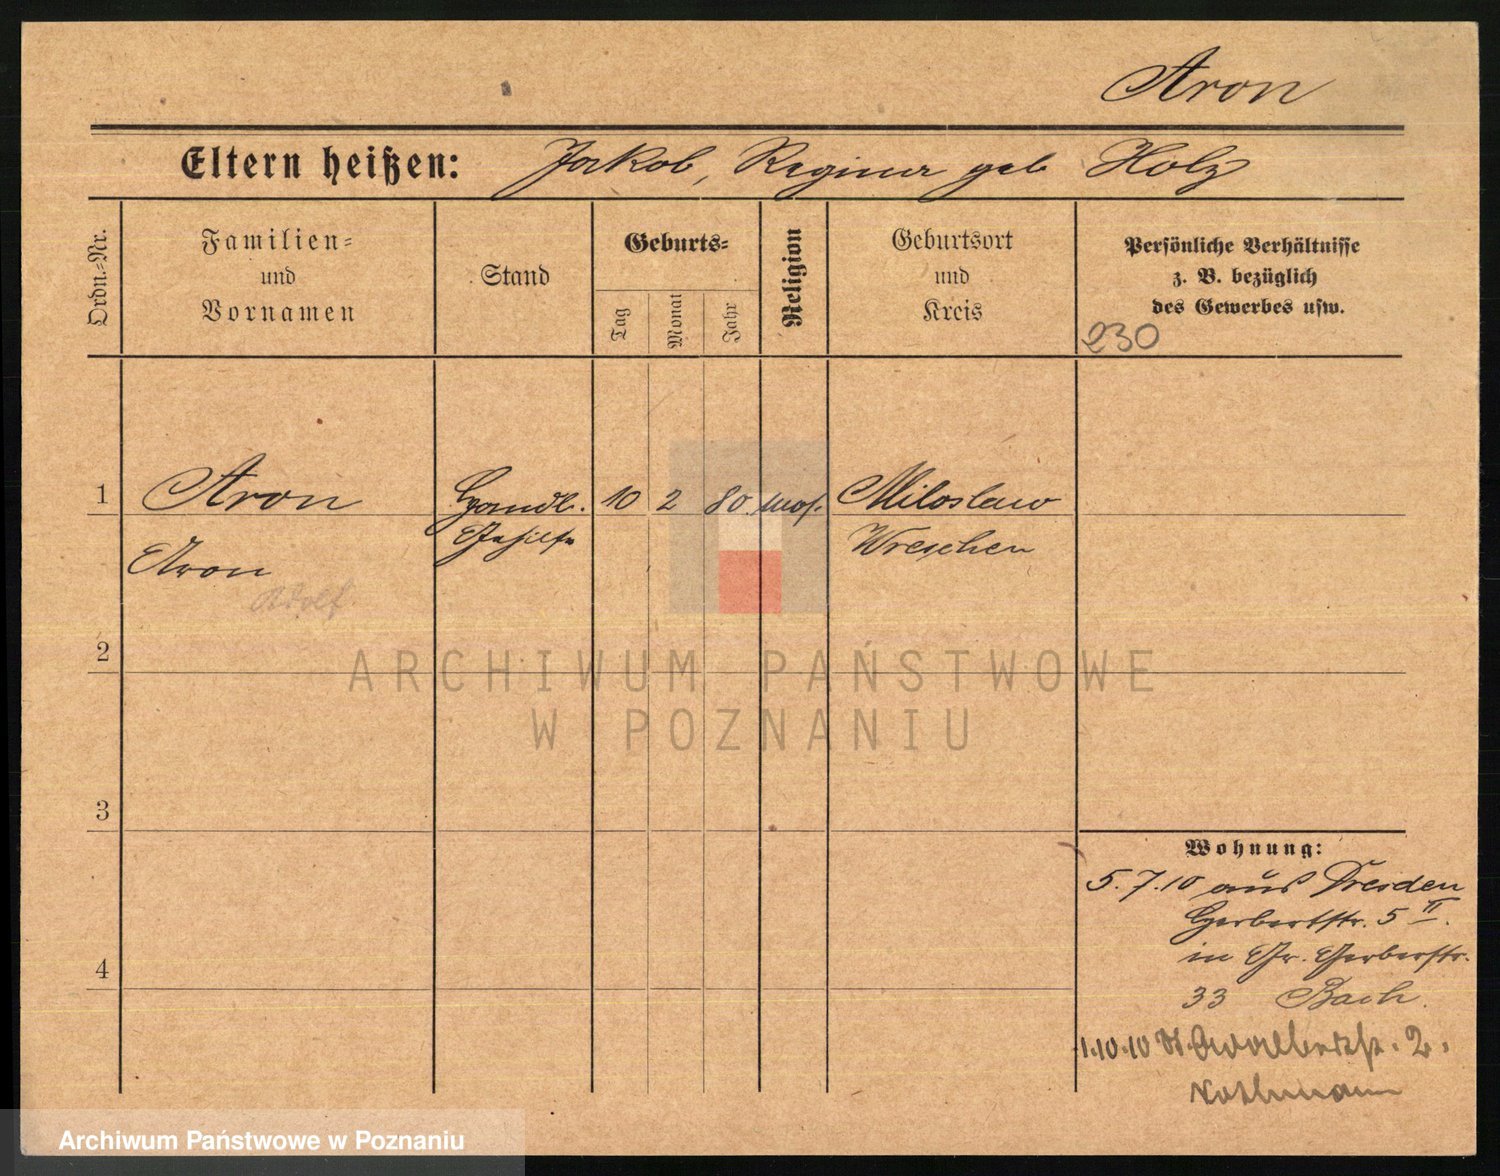 Aron
Eltern heißen: Jakob, Regina geb Holz
Ordn.-Nr.
Familien-
und
Vornamen
Stand
Geburts-
Tag
Monat
Jahr
Religion
Geburtsort
und
Kreis
Persönliche Verhältnisse
z. B. bezüglich
des Gewerbes usw.
230
1 Aron Handl. 10 2 80. mos. Miloslaw
Gehilfe Wreschen
Aron
Adolf
2
ARCHIWUM PAŃSTWOWE
W POZNANIU
3
Wohnung:
5.7.10 aus Dresden
5 II.
in Gr. Gerberstr.
4
33 Bach.
1.10.10 St. Adalbertstr. 2.
Archiwum Państwowe w Poznaniu